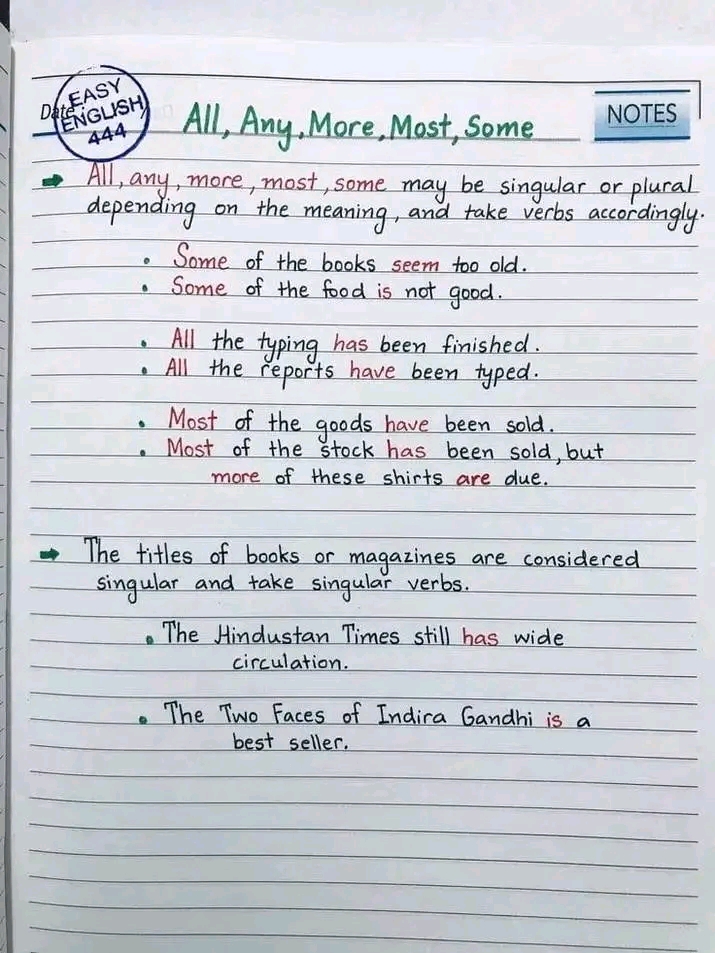 EASY
Date
ENGLISH
444
All, Any, More, Most, Some
NOTES
All, any, more, most, some may be singular or plural
depending on the meaning, and take verbs accordingly.
• Some of the books seem too old.
• Some of the food is not good.
• All the typing has been finished.
• All the reports have been typed.
• Most of the goods have been sold.
• Most of the stock has been sold, but
more of these shirts are due.
The titles of books or magazines are considered
singular and take singular verbs.
• The Hindustan Times still has wide
circulation.
• The Two Faces of Indira Gandhi is a
best seller.